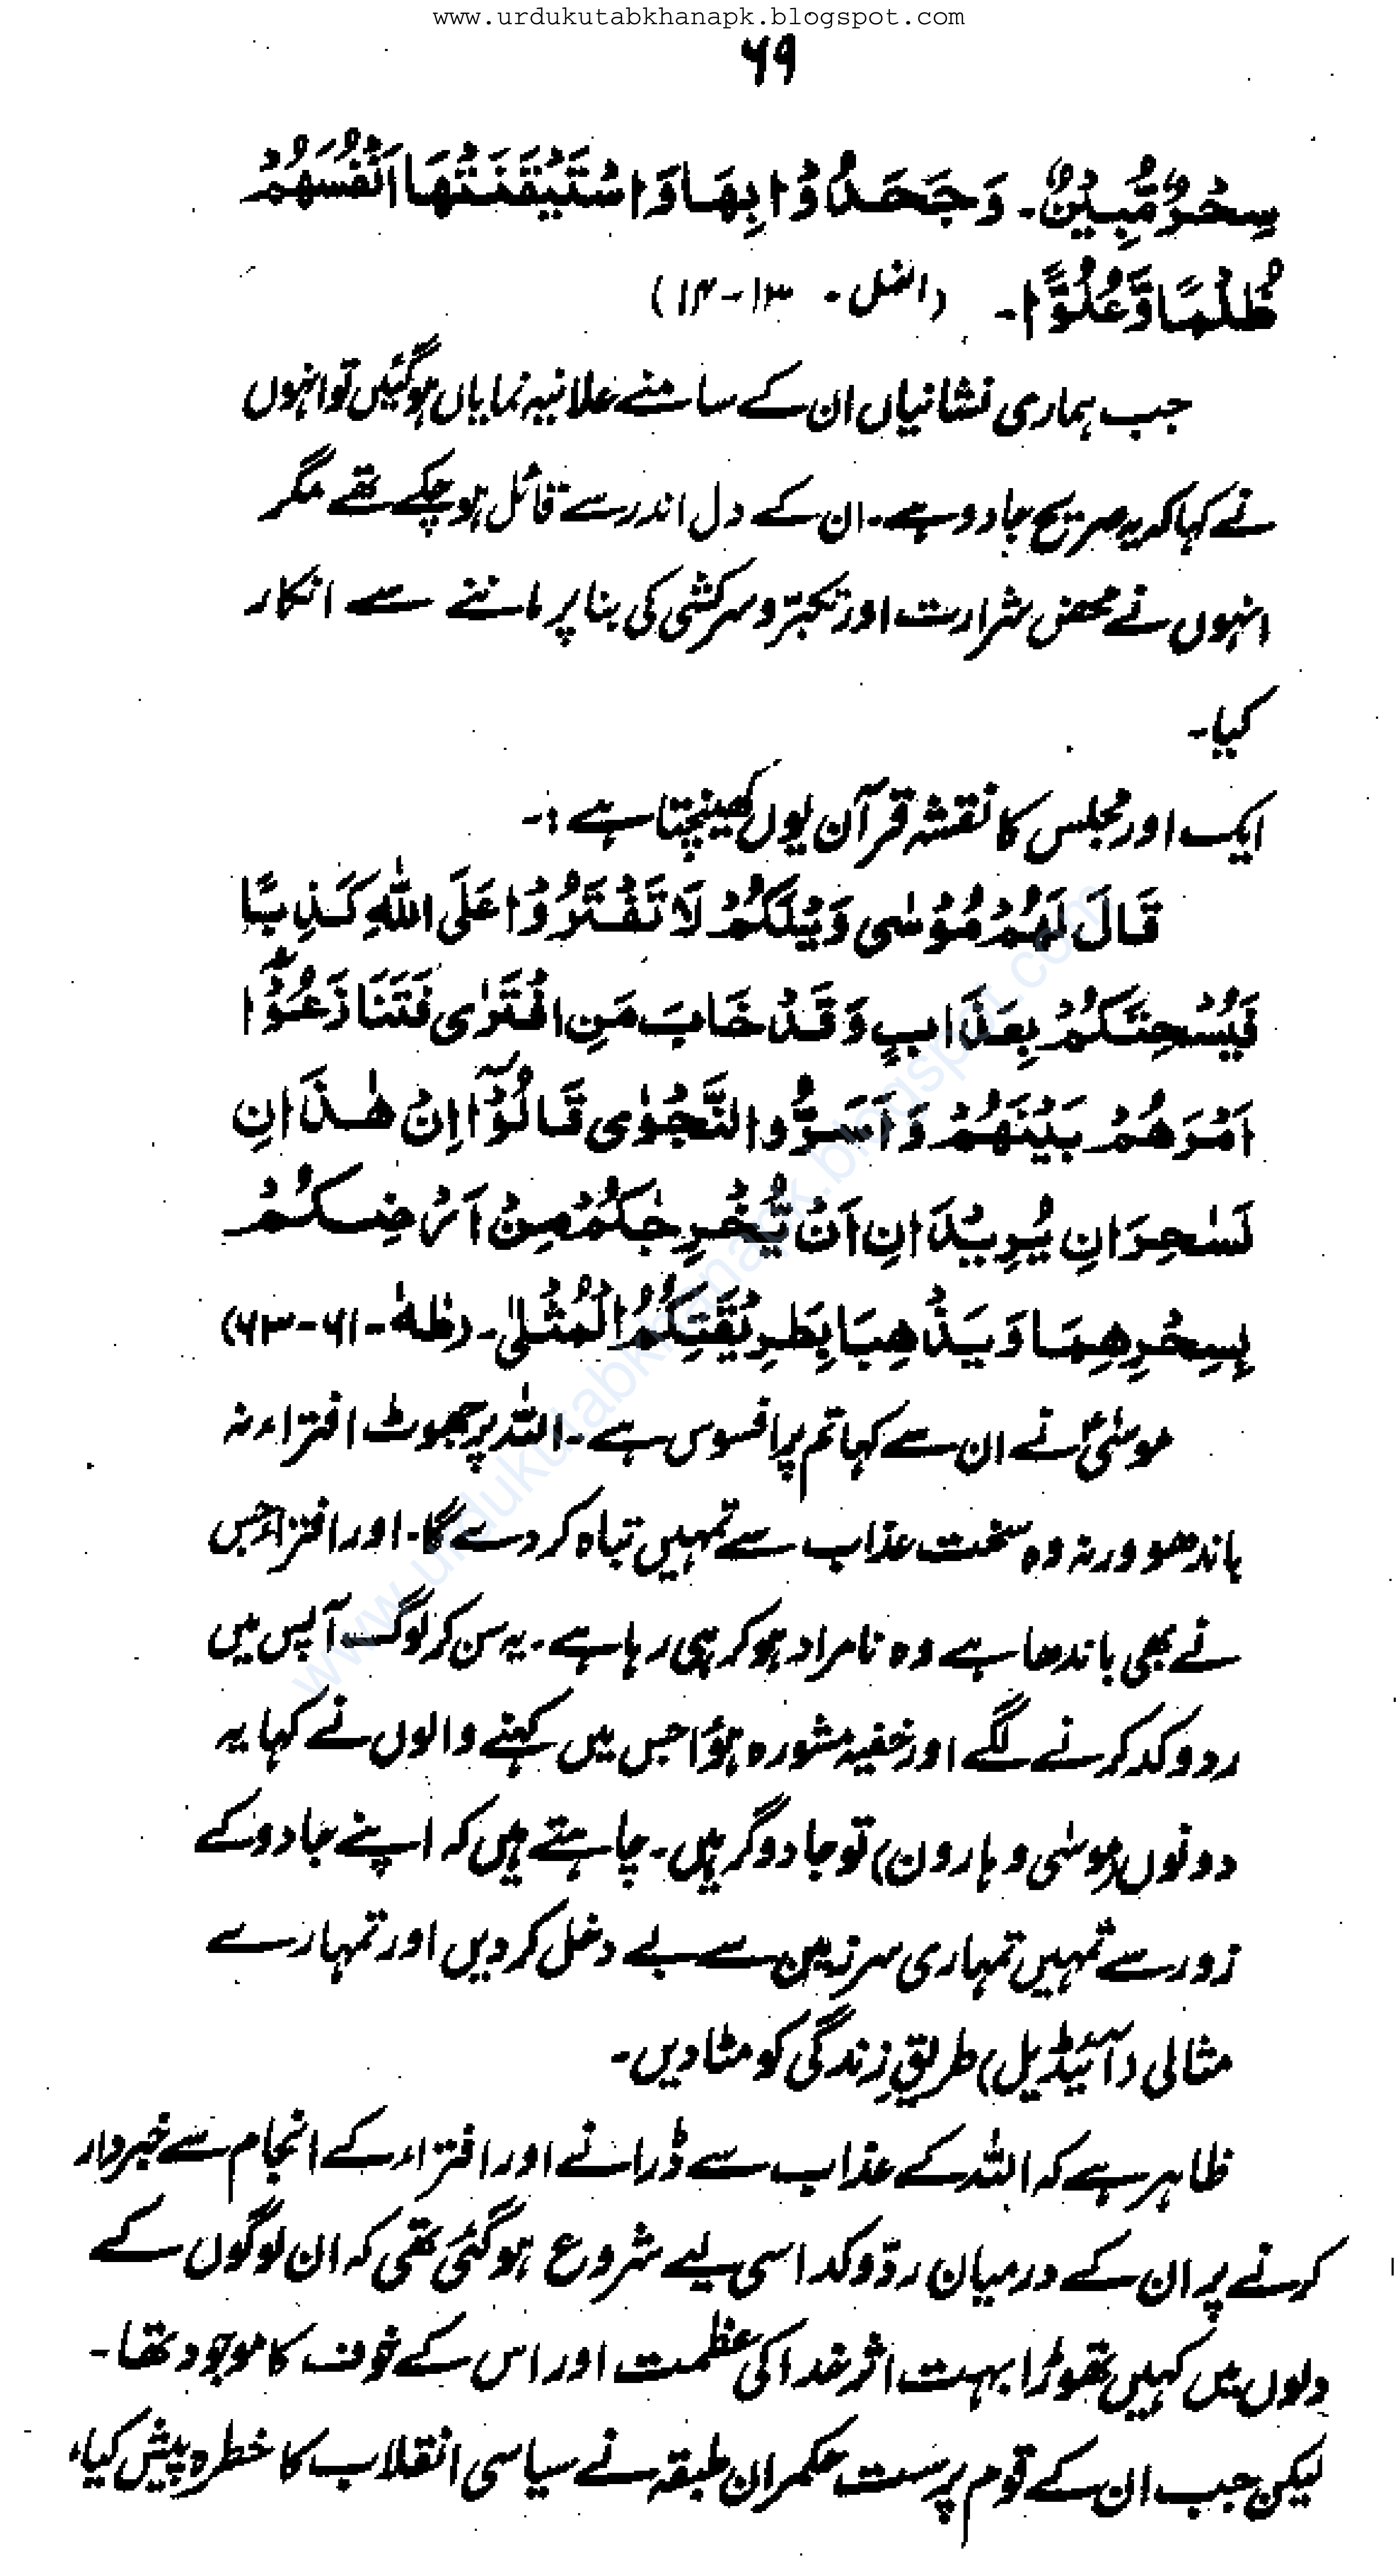 www.urdukutabkhanapk.blogspot.com
۶۹
سِحْرٌ مُّبِيْنٌ۔ وَجَحَدُوْا بِهَا وَاسْتَيْقَنَتْهَا اَنْفُسُهُمْ
ظُلْمًا وَّعُلُوًّا۔ (النمل۔ ۱۳-۱۴)
جب ہماری نشانیاں ان کے سامنے علانیہ نمایاں ہوگئیں تو انہوں
نے کہا کہ یہ صریح جادو ہے۔ ان کے دل اندر سے قائل ہوچکے تھے مگر
انہوں نے محض شرارت اور تکبّر و سرکشی کی بنا پر ماننے سے انکار
کیا۔
ایک اور مجلس کا نقشہ قرآن یوں کھینچتا ہے :۔
قَالَ لَهُمْ مُّوْسٰى وَيْلَكُمْ لَا تَفْتَرُوْا عَلَى اللّٰهِ كَذِبًا
فَيُسْحِتَكُمْ بِعَذَابٍ وَقَدْ خَابَ مَنِ افْتَرٰى فَتَنَازَعُوْٓا
اَمْرَهُمْ بَيْنَهُمْ وَاَسَرُّوا النَّجْوٰى قَالُوْٓا اِنْ هٰذَانِ
لَسٰحِرَانِ يُرِيْدَانِ اَنْ يُّخْرِجٰكُمْ مِنْ اَرْضِكُمْ
بِسِحْرِهِمَا وَيَذْهَبَا بِطَرِيْقَتِكُمُ الْمُثْلٰى۔ (طٰهٰ۔ ۶۱-۶۳)
موسٰیؑ نے ان سے کہا تم پر افسوس ہے۔ اللہ پر جھوٹ افتراء نہ
باندھو ورنہ وہ سخت عذاب سے تمہیں تباہ کر دے گا۔ اور افتراء جس
نے بھی باندھا ہے وہ نامراد ہو کر ہی رہا ہے۔ یہ سن کر لوگ آپس میں
ردوکد کرنے لگے اور خفیہ مشورہ ہوٴا جس میں کہنے والوں نے کہا یہ
دونوں (موسٰی و ہارون) تو جادوگر ہیں۔ چاہتے ہیں کہ اپنے جادو کے
زور سے تمہیں تمہاری سرزمین سے بے دخل کر دیں اور تمہارے
مثالی (آئیڈیل) طریقِ زندگی کو مٹا دیں۔
ظاہر ہے کہ اللہ کے عذاب سے ڈرانے اور افتراء کے انجام سے خبردار
کرنے پر ان کے درمیان ردّوکد اسی لیے شروع ہوگئی تھی کہ ان لوگوں کے
دلوں میں کہیں تھوڑا بہت اثر خدا کی عظمت اور اس کے خوف کا موجود تھا۔
لیکن جب ان کے قوم پرست حکمران طبقہ نے سیاسی انقلاب کا خطرہ پیش کیا،
www.urdukutabkhanapk.blogspot.com